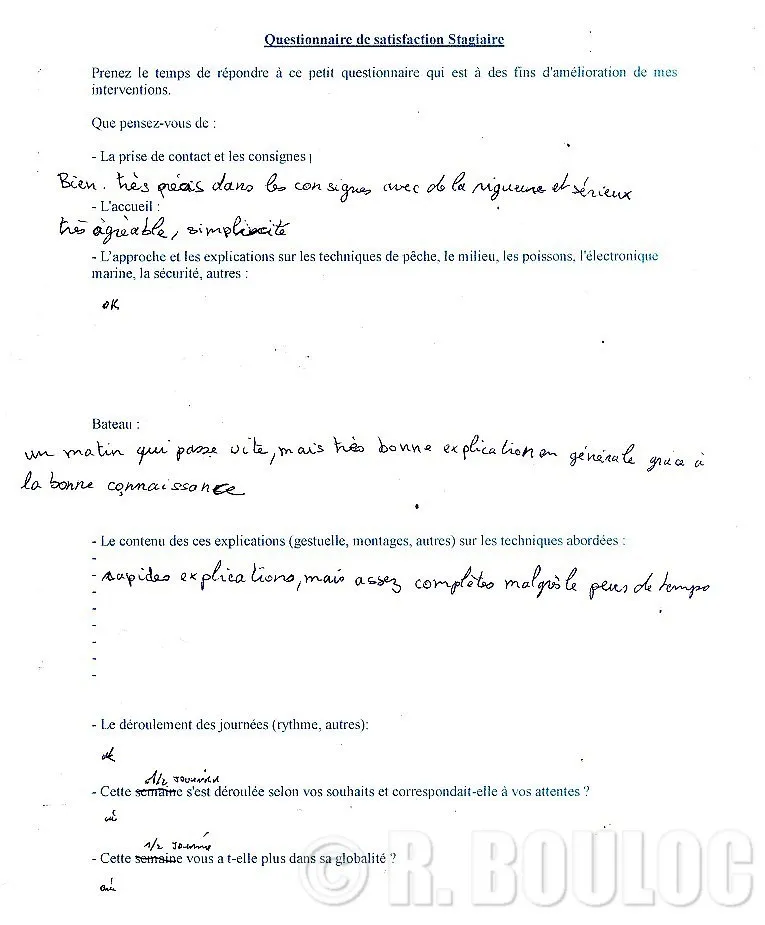 Questionnaire de satisfaction Stagiaire
Prenez le temps de répondre à ce petit questionnaire qui est à des fins d'amélioration de mes
interventions.
Que pensez-vous de :
- La prise de contact et les consignes
Bien. très précis dans les consignes avec de la rigueure et sérieux
- L'accueil :
très àgréable, simpliscité
- L'approche et les explications sur les techniques de pêche, le milieu, les poissons, l'électronique
marine, la sécurité, autres :
OK
Bateau :
un matin qui passe vite, mais très bonne explication en générale grâce à
la bonne connaissance
- Le contenu des ces explications (gestuelle, montages, autres) sur les techniques abordées :
-
- rapides explications, mais assez complètes malgrès le peus de temps
-
-
-
-
-
-
- Le déroulement des journées (rythme, autres):
ok
1/2 journée
- Cette semaine s'est déroulée selon vos souhaits et correspondait-elle à vos attentes ?
oui
1/2 journée
- Cette semaine vous a t-elle plus dans sa globalité ?
oui
© R. BOULOC